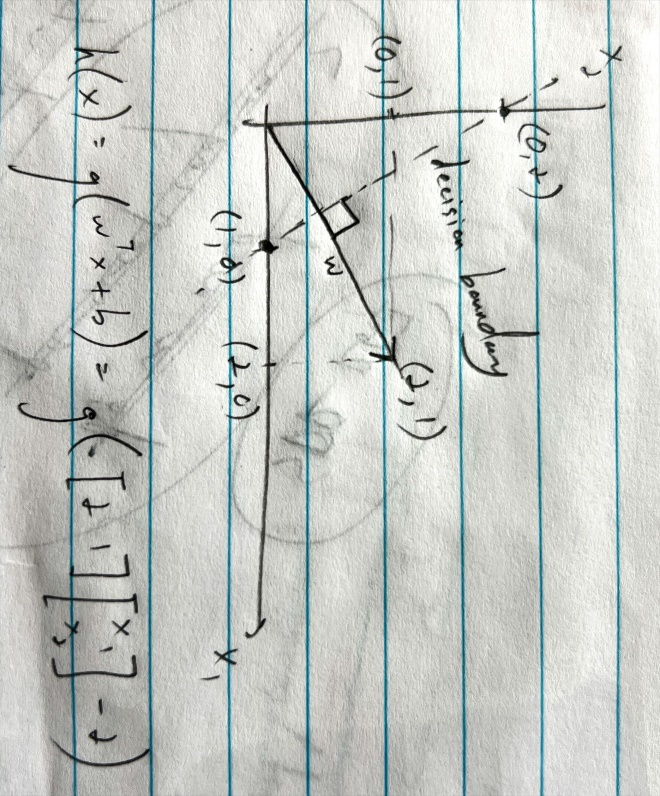 x₂
(0,2)
decision boundary
(0,1) (2,1)
w
(1,0) (2,0) x₁
h(x) = g(wᵀx + b) = g([2 1][x₁ x₂] - 2)